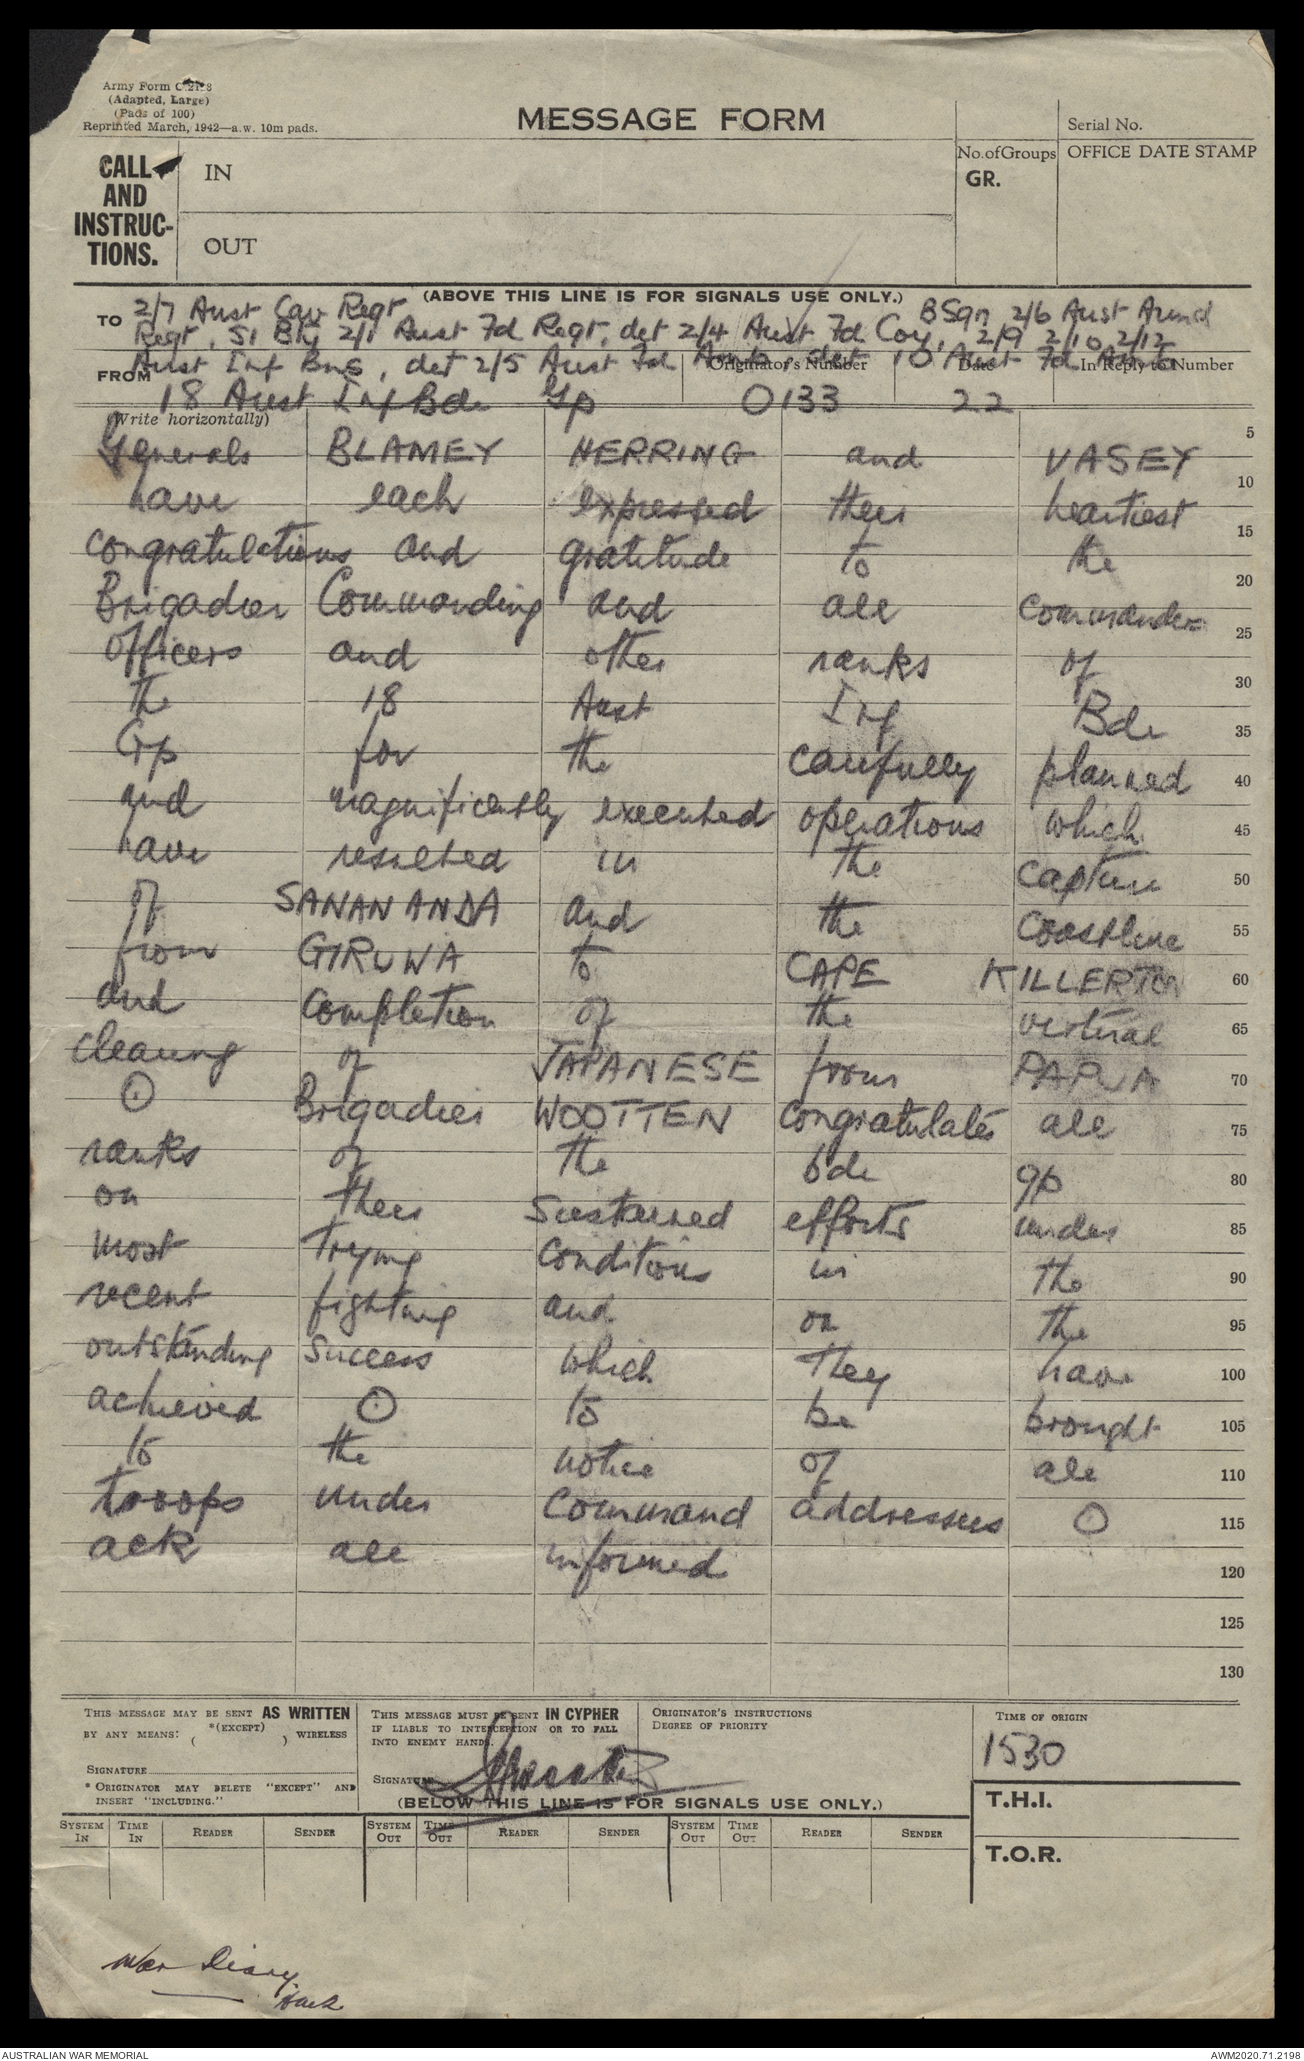 Army Form C.2128
(Adapted, Large)
(Pads of 100)
Reprinted March, 1942—a.w. 10m pads.
MESSAGE FORM
Serial No.
CALL AND INSTRUC-TIONS.
IN
OUT
No. of Groups
GR.
OFFICE DATE STAMP
(ABOVE THIS LINE IS FOR SIGNALS USE ONLY.)
TO 2/7 Aust Cav Regt B Sqn 2/6 Aust Armd
Regt, 51 Bty 2/1 Aust Fd Regt, det 2/4 Aust Fd Coy, 2/9 2/10 2/12
Aust Inf Bns, det 2/5 Aust Fd Amb, det 10 Aust Fd Amb
FROM 18 Aust Inf Bde Gp
Originator's Number 0133
Date 22
In Reply to Number
(Write horizontally)
Generals BLAMEY HERRING and VASEY 5
have each expressed their heartiest 10
congratulations and gratitude to the 15
Brigadier Commanding and all commanders 20
officers and other ranks of 25
the 18 Aust Inf Bde 30
Gp for the carefully planned 35
and magnificently executed operations which 40
have resulted in the capture 45
of SANANANDA and the coastline 50
from GIRUWA to CAPE KILLERTON 55
and completion of the virtual 60
clearing of JAPANESE from PAPUA 65
⊙ Brigadier WOOTTEN congratulates all 70
ranks of the bde gp 75
on their sustained efforts under 80
most trying conditions in the 85
recent fighting and on the 90
outstanding success which they have 95
achieved ⊙ to be brought 100
to the notice of all 105
troops under command addressees O 110
ack all informed 115
120
125
130
THIS MESSAGE MAY BE SENT AS WRITTEN
BY ANY MEANS: *(EXCEPT) ( ) WIRELESS
SIGNATURE
* ORIGINATOR MAY DELETE "EXCEPT" AND
INSERT "INCLUDING."
THIS MESSAGE MUST BE SENT IN CYPHER
IF LIABLE TO INTERCEPTION OR TO FALL
INTO ENEMY HANDS.
SIGNATURE
ORIGINATOR'S INSTRUCTIONS
DEGREE OF PRIORITY
TIME OF ORIGIN
1530
(BELOW THIS LINE IS FOR SIGNALS USE ONLY.)
T.H.I.
T.O.R.
SYSTEM IN TIME IN READER SENDER SYSTEM OUT TIME OUT READER SENDER SYSTEM OUT TIME OUT READER SENDER
War Diary
AUSTRALIAN WAR MEMORIAL
AWM2020.71.2198